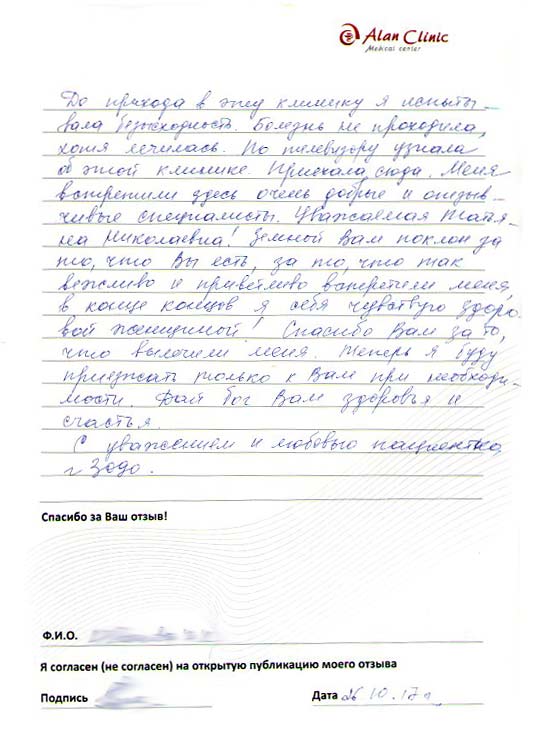 Alan Clinic
Medical center
До прихода в эту клинику я испыты-
вала безысходность. Болезнь не проходила,
хотя лечилась. По телевизору узнала
об этой клинике. Приехала сюда. Меня
встретили здесь очень добрые и отзыв-
чивые специалисты. Уважаемая Татья-
на Николаевна! Земной Вам поклон за
то, что Вы есть, за то, что так
вежливо и приветливо встретили меня,
в конце концов я себя чувствую здоро-
вой женщиной! Спасибо Вам за то,
что вылечили меня. Теперь я буду
приезжать только к Вам при необходи-
мости. Дай бог Вам здоровья и
счастья.
С уважением и любовью пациентка
Спасибо за Ваш отзыв!
Ф.И.О.
Я согласен (не согласен) на открытую публикацию моего отзыва
Подпись Дата 26 10.17г.